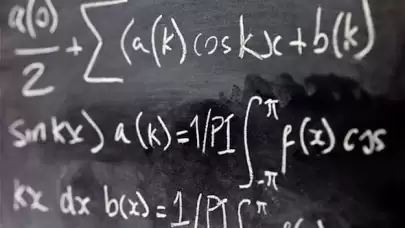 a(0)/2 + ∑ (a(k) cos kx + b(k)
sin kx) a(k) = 1/PI ∫_{-π}^{π} f(x) cos
kx dx b(x) = 1/PI ∫^{π}